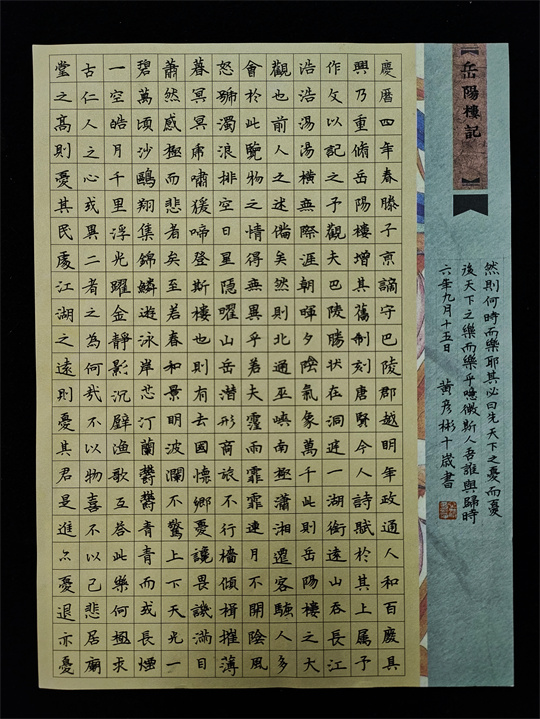 岳陽樓記
慶曆四年春滕子京謫守巴陵郡越明年政通人和百廢具
興乃重脩岳陽樓增其舊制刻唐賢今人詩賦於其上屬予
作文以記之予觀夫巴陵勝狀在洞庭一湖銜遠山吞長江
浩浩湯湯橫無際涯朝暉夕陰氣象萬千此則岳陽樓之大
觀也前人之述備矣然則北通巫峽南極瀟湘遷客騷人多
會於此覽物之情得無異乎若夫霪雨霏霏連月不開陰風
怒號濁浪排空日星隱曜山岳潛形商旅不行檣傾楫摧薄
暮冥冥虎嘯猿啼登斯樓也則有去國懷鄉憂讒畏譏滿目
蕭然感極而悲者矣至若春和景明波瀾不驚上下天光一
碧萬頃沙鷗翔集錦鱗游泳岸芷汀蘭鬱鬱青青而或長煙
一空皓月千里浮光躍金靜影沉璧漁歌互答此樂何極求
古仁人之心或異二者之為何哉不以物喜不以己悲居廟
堂之高則憂其民處江湖之遠則憂其君是進亦憂退亦憂
然則何時而樂耶其必曰先天下之憂而憂
後天下之樂而樂乎噫微斯人吾誰與歸時
六年九月十五日 黃彥彬十歲書